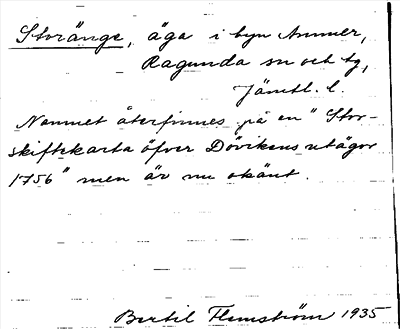 Storänge, äga i byn Ammer,
Ragunda sn och tg,
Jämtl. l.
Namnet återfinnes på en "Stor-
skiftskarta öfver Dövikens utägor
1756" men är nu okänt.
Bertil Flemström 1935